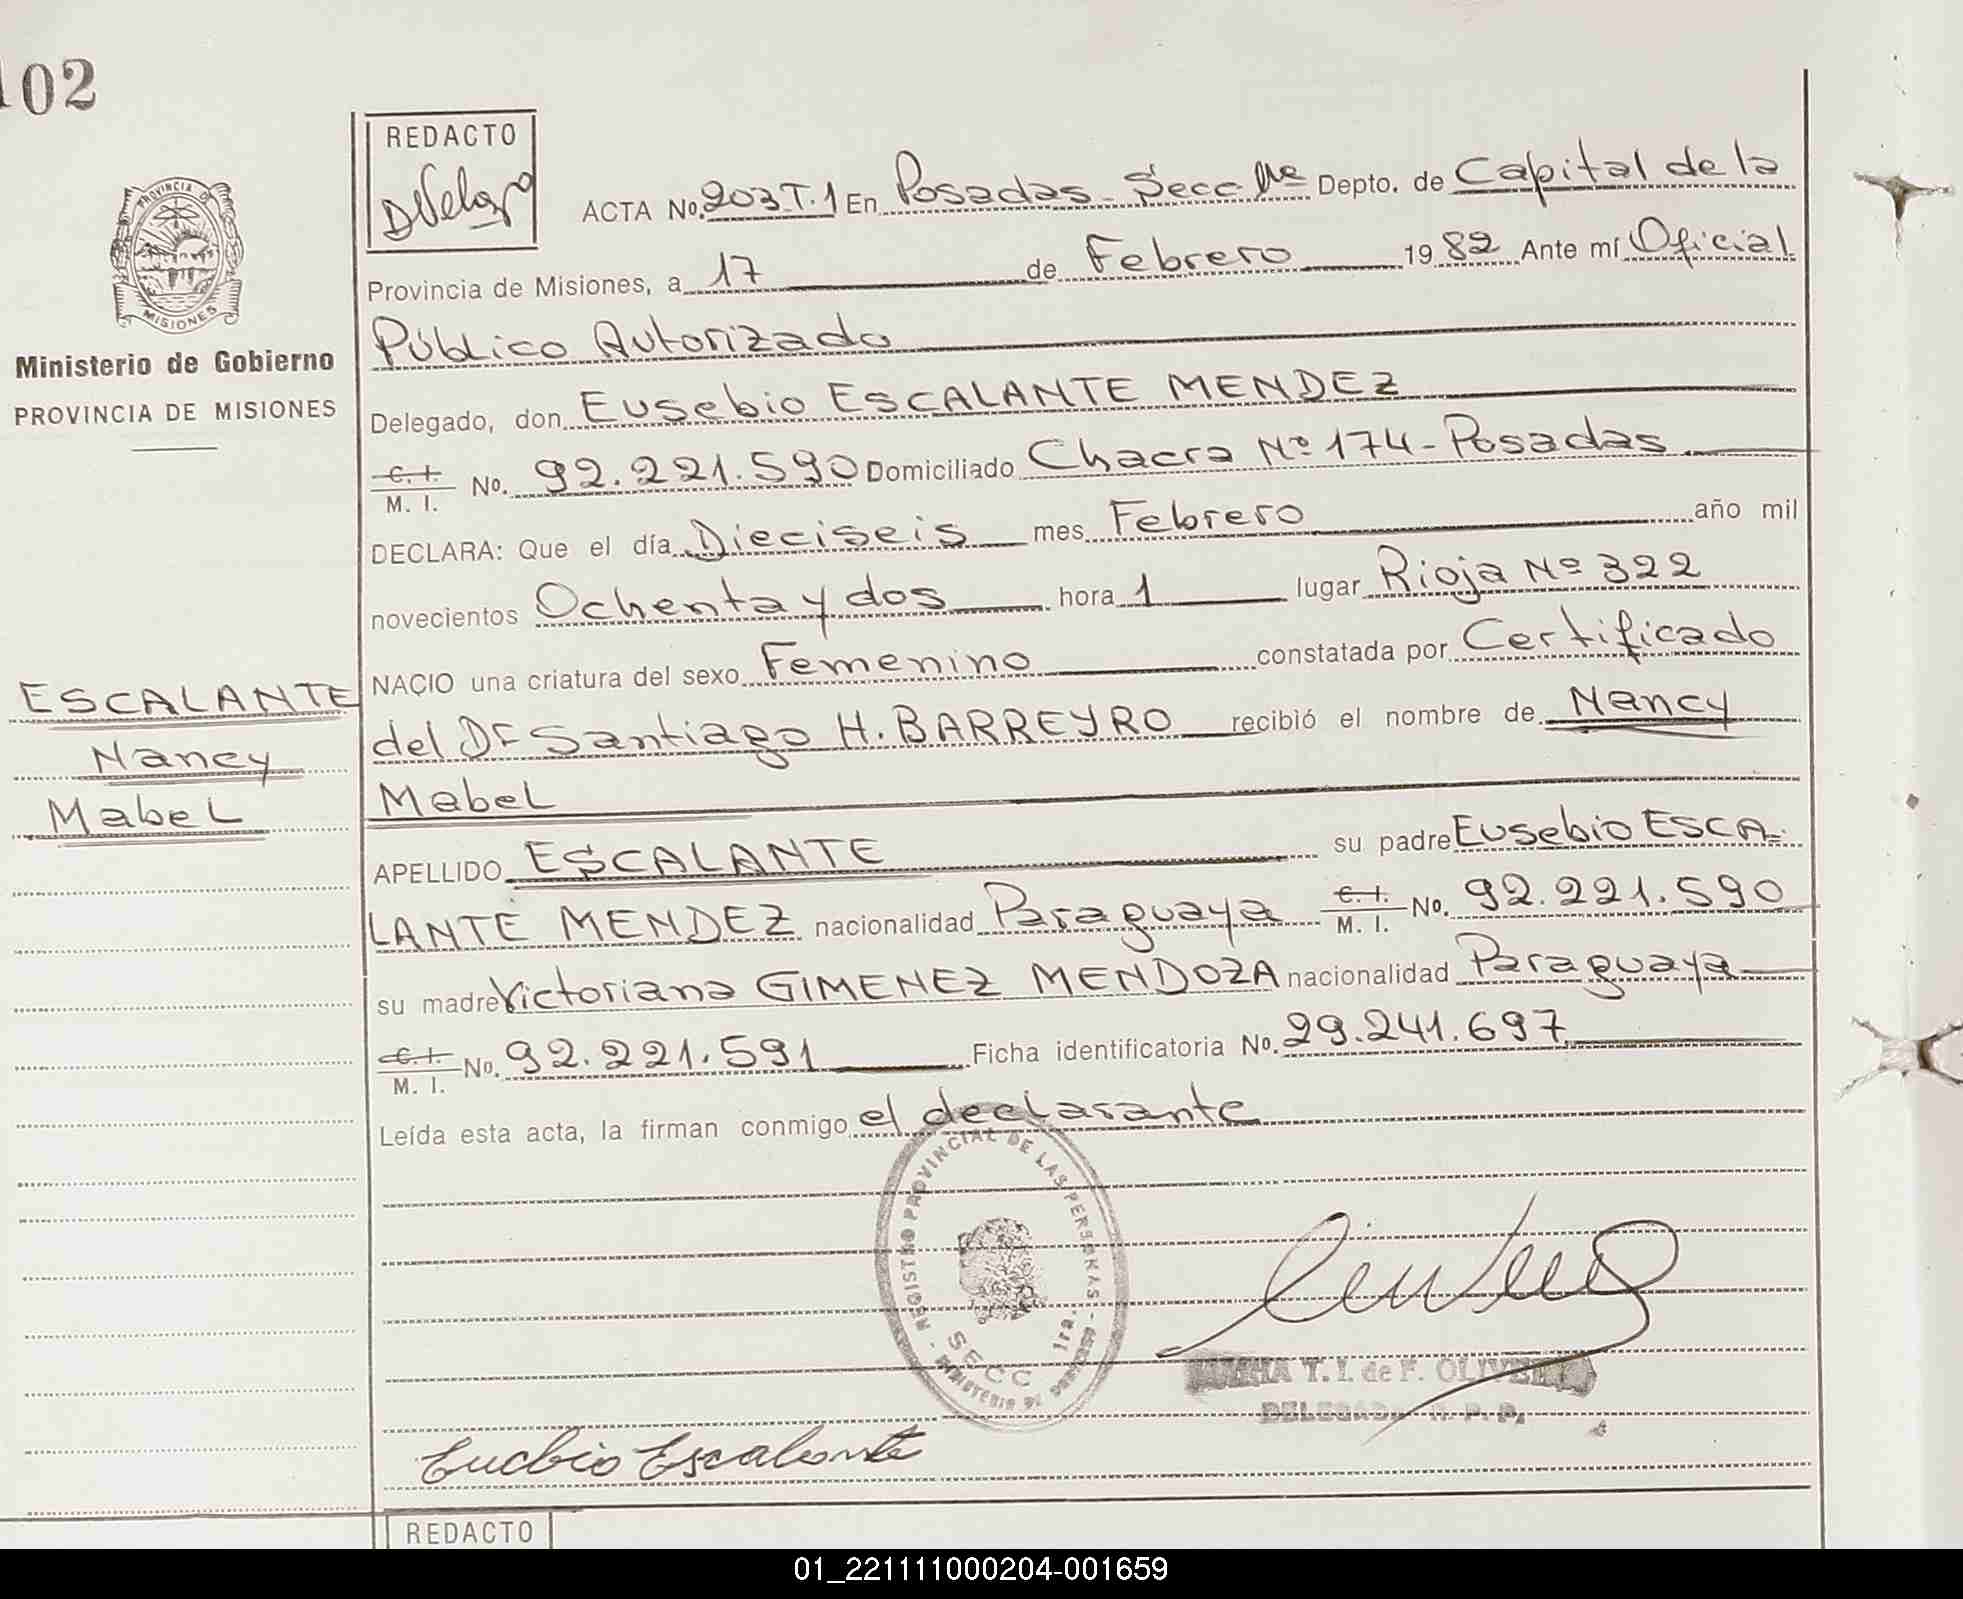 102
REDACTO
PROVINCIA DE
MISIONES
Ministerio de Gobierno
PROVINCIA DE MISIONES
ACTA No. 203 T.1 En Posadas - Secc 1ra Depto. de Capital de la
Provincia de Misiones, a 17 de Febrero 1982 Ante mí Oficial
Público Autorizado
Delegado, don Eusebio ESCALANTE MENDEZ
C. I. / M. I. No. 92.221.590 Domiciliado Chacra Nº 174 - Posadas
DECLARA: Que el día Dieciseis mes Febrero año mil
novecientos Ochenta y dos hora 1 lugar Rioja Nº 322
NACIO una criatura del sexo Femenino constatada por Certificado
del Dr Santiago H. BARREYRO recibió el nombre de Nancy
Mabel
APELLIDO ESCALANTE su padre Eusebio ESCA=
LANTE MENDEZ nacionalidad Paraguaya C. I. / M. I. No. 92.221.590
su madre Victoriana GIMENEZ MENDOZA nacionalidad Paraguaya
C. I. / M. I. No. 92.221.591 Ficha identificatoria No. 29.241.697
Leída esta acta, la firman conmigo el declarante
ESCALANTE
Nancy
Mabel
REGISTRO PROVINCIAL DE LAS PERSONAS
SECC 1ra.
T. I. de F.
Eucbio Escalante
REDACTO
01_221111000204-001659